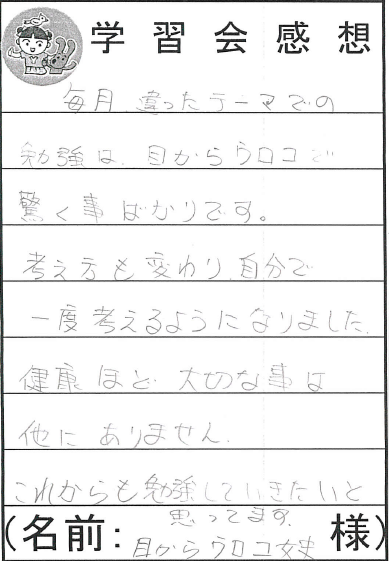 学習会感想
毎月、違ったテーマでの
勉強は、目からウロコで
驚く事ばかりです。
考え方も変わり、自分で
一度考えるようになりました。
健康ほど大切な事は
他にありません。
これからも勉強していきたいと
思ってます。
(名前:目からウロコ女史様)